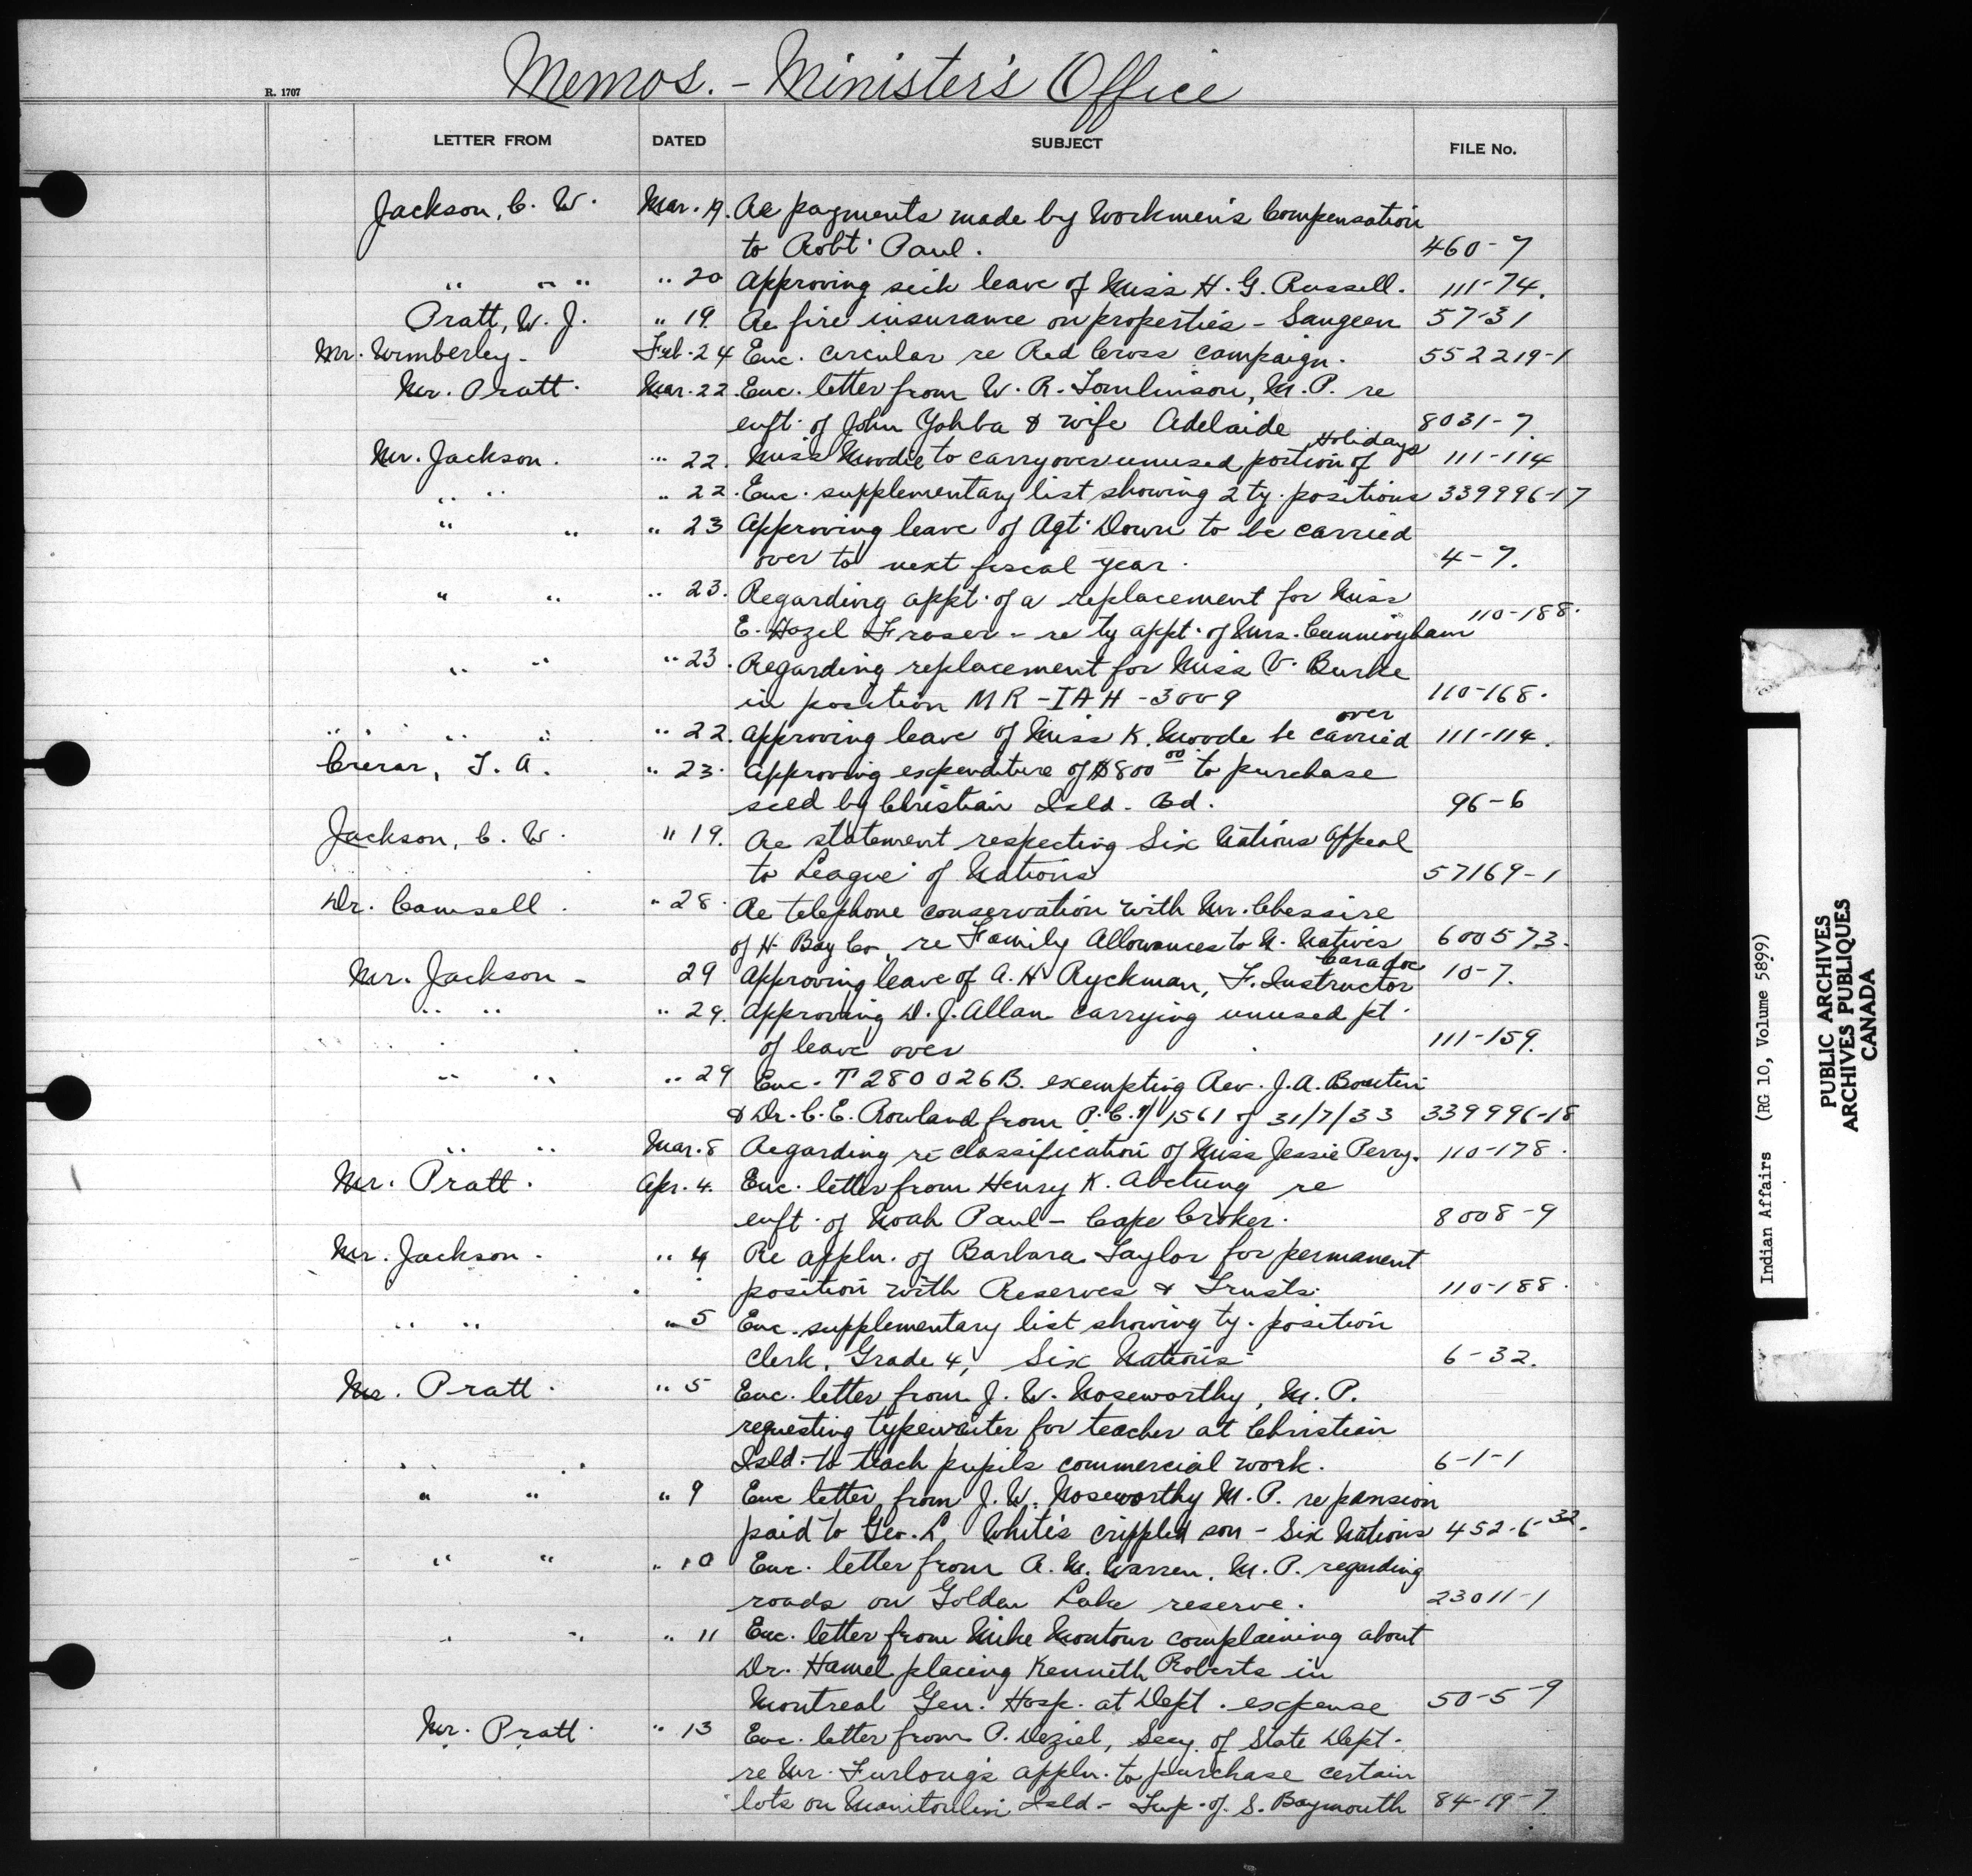 Memos. - Minister's Office
R. 1707
LETTER FROM DATED SUBJECT FILE No.
Jackson, C. W. Mar. 19. Re payments made by Workmen's Compensation
to Robt. Paul. 460-7
" " " " 20 Approving sick leave of Miss H. G. Russell. 111-74.
Pratt, W. J. " 19. Re fire insurance on properties - Saugeen 57-31
Mr. Wimberley - Feb. 24 Enc. circular re Red Cross campaign. 552219-1
Mr. Pratt. Mar. 22. Enc. letter from W. R. Tomlinson, M. P. re
enft. of John Yahba & wife Adelaide 8031-7.
Holidays
Mr. Jackson. " 22. Miss Moodie to carry over unused portion of 111-114
" " " 22. Enc. supplementary list showing 2 ty. positions 339996-17
" " " 23 Approving leave of Agt. Down to be carried
over to next fiscal year. 4-7.
" " " 23. Regarding appt. of a replacement for Miss
E. Hazel Fraser - re ty appt. of Mrs. Cunningham 110-188.
" " " 23. Regarding replacement for Miss V. Burke
in position MR-IAH-3009 110-168.
over
" " " " 22. Approving leave of Miss K. Moode be carried 111-114.
Crerar, T. A. " 23. Approving expenditure of $800 00 to purchase
seed by Christian Isld. Bd. 96-6
Jackson, C. W. " 19. Re statement respecting Six Nations Appeal
to League of Nations 57169-1
Dr. Camsell. " 28. Re telephone conservation with Mr. Chessire
of H. Bay Co. re Family Allowances to N. Natives 600573.
Caradoc
Mr. Jackson - 29 Approving leave of A. H. Ryckman, F. Instructor 10-7.
" " " 29. Approving D. J. Allan carrying unused pt.
of leave over 111-159.
" " " 29 Enc. T 280026B. exempting Rev. J. A.
& Dr. C. E. Rowland from P. C. 1/1561 of 31/7/33 339996-18
" " Mar. 8 Regarding re classification of Miss Jessie Perry. 110-178.
Mr. Pratt. Apr. 4. Enc. letter from Henry K. re
enft. of Noah Paul - Cape Croker. 8008-9
Mr. Jackson. " 4 Re appln. of Barbara Taylor for permanent
position with Reserves & Trusts. 110-188.
" " " 5 Enc. supplementary list showing ty. position
Clerk, Grade 4, Six Nations 6-32.
Mr. Pratt. " 5 Enc. letter from J. W. Noseworthy, M. P.
requesting typewriter for teacher at Christian
Isld. to teach pupils commercial work. 6-1-1
" " " 9 Enc letter from J. W. Noseworthy M. P. re pension
paid to Geo. L. White's crippled son - Six Nations 452-6-32.
" " " 10 Enc. letter from A. M. Warren, M. P. regarding
roads on Golden Lake reserve. 23011-1
" " " 11 Enc. letter from Mike Montour complaining about
Dr. Hamel placing Kenneth Roberts in
Montreal Gen. Hosp. at Dept. expense 50-5-9
Mr. Pratt. " 13 Enc. letter from P. Deziel, Secy. of State Dept.
re Mr. Furlong's appln. to purchase certain
lots on Manitoulin Isld - Twp. of S. Baymouth 84-19-7
Indian Affairs (RG 10, Volume 5899)
PUBLIC ARCHIVES
ARCHIVES PUBLIQUES
CANADA